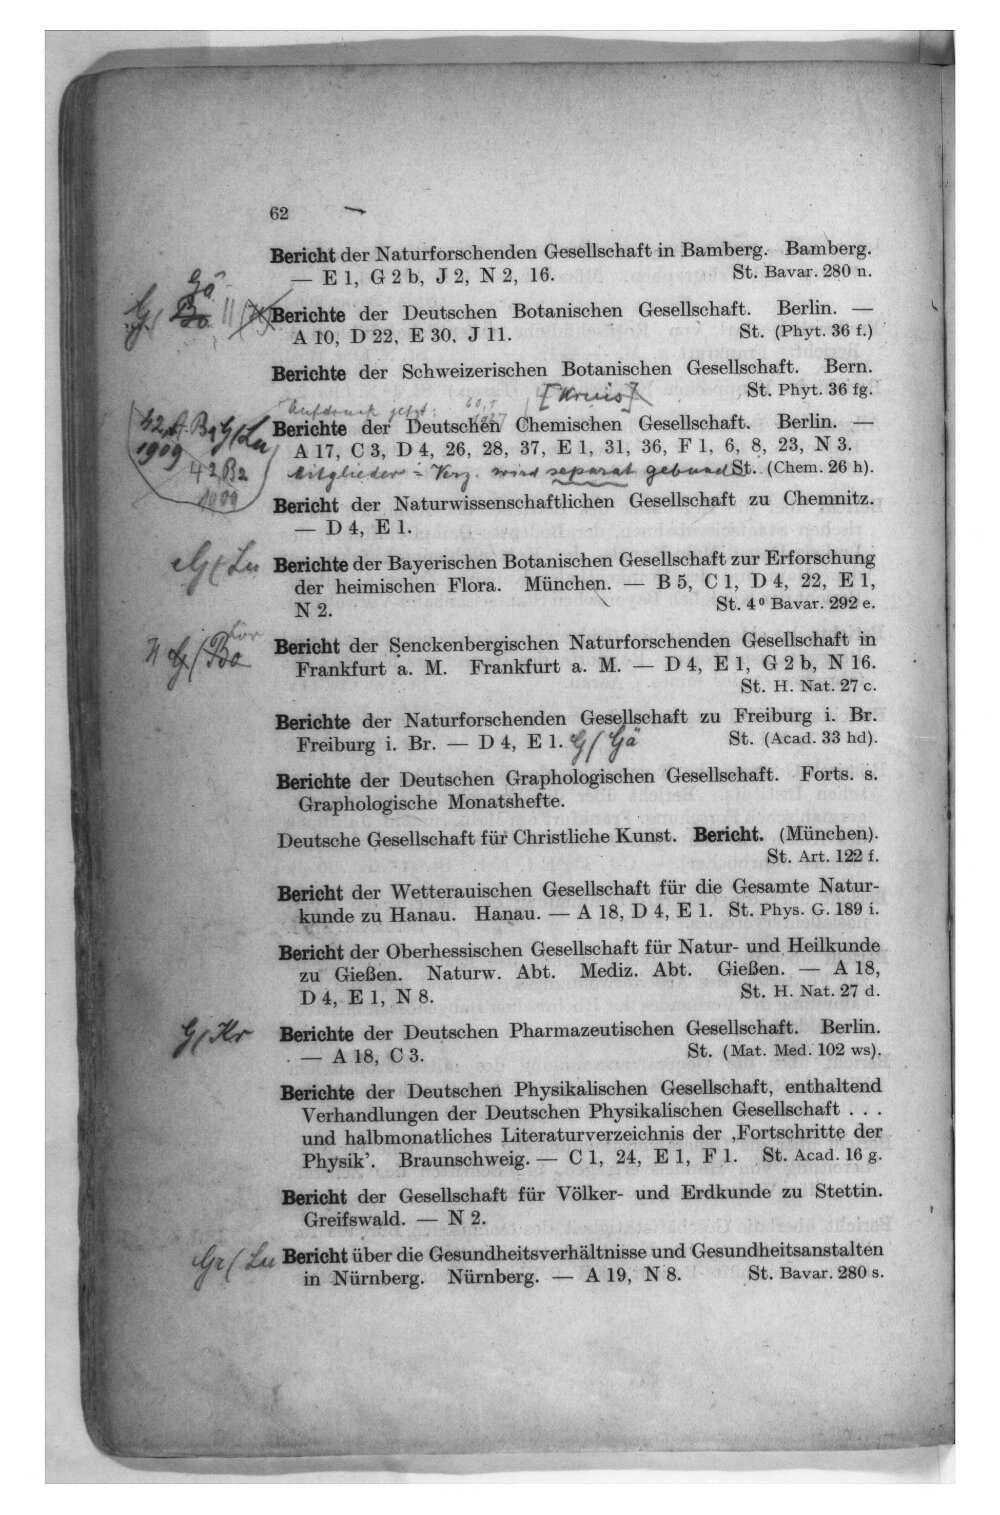 62
Bericht der Naturforschenden Gesellschaft in Bamberg. Bamberg.
— E 1, G 2 b, J 2, N 2, 16. St. Bavar. 280 n.
Gä
G/ Bo
Berichte der Deutschen Botanischen Gesellschaft. Berlin. —
A 10, D 22, E 30, J 11. St. (Phyt. 36 f.)
Berichte der Schweizerischen Botanischen Gesellschaft. Bern.
St. Phyt. 36 fg.
Aufdruck jetzt: [Kreis]
42 A. Ba G/Lu
Berichte der Deutschen Chemischen Gesellschaft. Berlin. —
1909
A 17, C 3, D 4, 26, 28, 37, E 1, 31, 36, F 1, 6, 8, 23, N 3.
42 Ba
Mitglieder-Verz. wird separat gebund. St. (Chem. 26 h).
1909
Bericht der Naturwissenschaftlichen Gesellschaft zu Chemnitz.
— D 4, E 1.
G/Lu
Berichte der Bayerischen Botanischen Gesellschaft zur Erforschung
der heimischen Flora. München. — B 5, C 1, D 4, 22, E 1,
N 2. St. 4⁰ Bavar. 292 e.
Bericht der Senckenbergischen Naturforschenden Gesellschaft in
G/Bo
Frankfurt a. M. Frankfurt a. M. — D 4, E 1, G 2 b, N 16.
St. H. Nat. 27 c.
Berichte der Naturforschenden Gesellschaft zu Freiburg i. Br.
Freiburg i. Br. — D 4, E 1. G/Gä St. (Acad. 33 hd).
Berichte der Deutschen Graphologischen Gesellschaft. Forts. s.
Graphologische Monatshefte.
Deutsche Gesellschaft für Christliche Kunst. Bericht. (München).
St. Art. 122 f.
Bericht der Wetterauischen Gesellschaft für die Gesamte Natur-
kunde zu Hanau. Hanau. — A 18, D 4, E 1. St. Phys. G. 189 i.
Bericht der Oberhessischen Gesellschaft für Natur- und Heilkunde
zu Gießen. Naturw. Abt. Mediz. Abt. Gießen. — A 18,
D 4, E 1, N 8. St. H. Nat. 27 d.
G/Kr
Berichte der Deutschen Pharmazeutischen Gesellschaft. Berlin.
— A 18, C 3. St. (Mat. Med. 102 ws).
Berichte der Deutschen Physikalischen Gesellschaft, enthaltend
Verhandlungen der Deutschen Physikalischen Gesellschaft . . .
und halbmonatliches Literaturverzeichnis der ‚Fortschritte der
Physik’. Braunschweig. — C 1, 24, E 1, F 1. St. Acad. 16 g.
Bericht der Gesellschaft für Völker- und Erdkunde zu Stettin.
Greifswald. — N 2.
Gr/Lu
Bericht über die Gesundheitsverhältnisse und Gesundheitsanstalten
in Nürnberg. Nürnberg. — A 19, N 8. St. Bavar. 280 s.